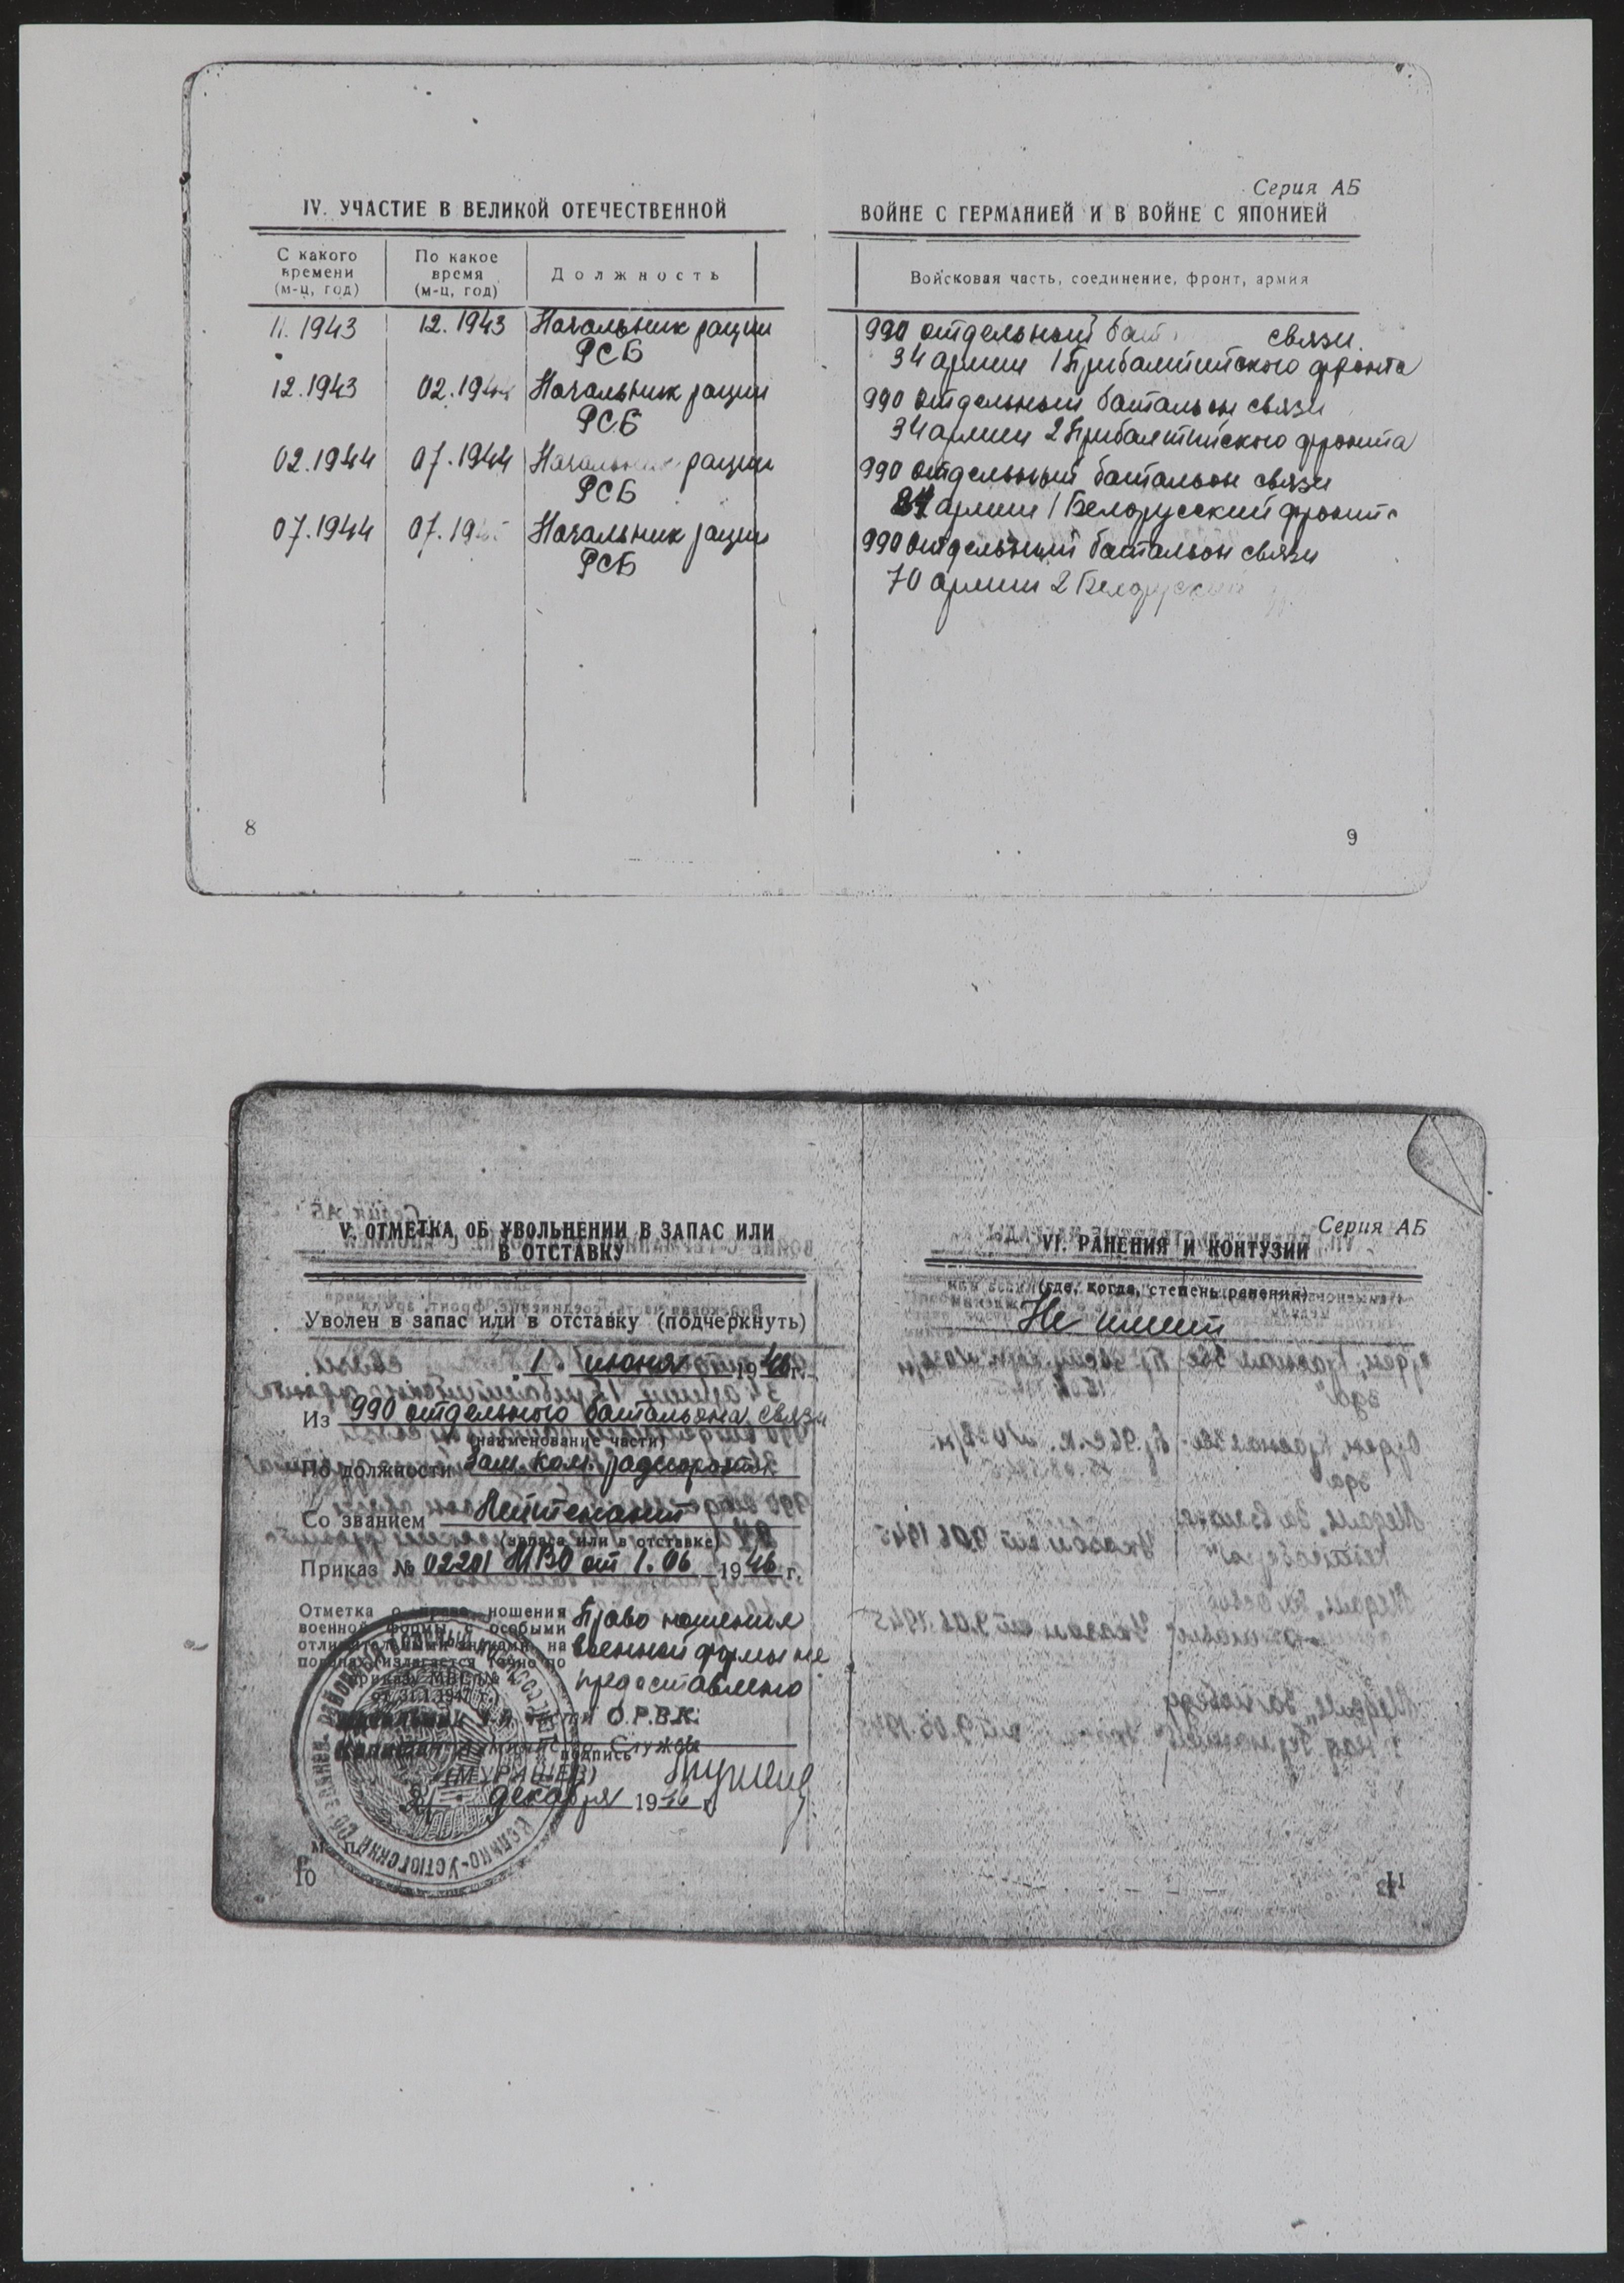 Серия АБ
IV. УЧАСТИЕ В ВЕЛИКОЙ ОТЕЧЕСТВЕННОЙ
ВОЙНЕ С ГЕРМАНИЕЙ И В ВОЙНЕ С ЯПОНИЕЙ
С какого времени (м-ц, год)
По какое время (м-ц, год)
Должность
Войсковая часть, соединение, фронт, армия
11.1943 12.1943 Начальник рации
РСБ
990 отдельный бат связи
34 армии 1 Прибалтийского фронта
12.1943 02.1944 Начальник рации
РСБ
990 отдельный батальон связи
34 армии 2 Прибалтийского фронта
02.1944 07.1944 Начальник рации
РСБ
990 отдельный батальон связи
армии 1 Белорусский фронт
07.1944 07.194 Начальник рации
РСБ
990 отдельный батальон связи
70 армии 2 Белоруский
8
9
V. ОТМЕТКА ОБ УВОЛЬНЕНИИ В ЗАПАС ИЛИ
В ОТСТАВКУ
Уволен в запас или в отставку (подчеркнуть)
„1" июня 1946 г.
Из 990 отдельного батальона связи
(наименование части)
По должности Зам. ком. радиороты
Со званием Лейтенант
(запаса или в отставке)
Приказ № 02201 МВО от 1.06 1946 г.
Отметка о праве ношения
военной формы с особыми
отличительными знаками на
погонах (излагается точно по
приказу МВС №
от 31.1.1947 г.)
Право ношения
военной формы не
предоставлено
части О.Р.В.К.
Капитан административ. Службы
подпись
(МУРАШЕВ)
21 декабря 19 г.
М. П.
10
Серия АБ
VI. РАНЕНИЯ И КОНТУЗИИ
(где, когда, степень ранения)
Не имеет
11